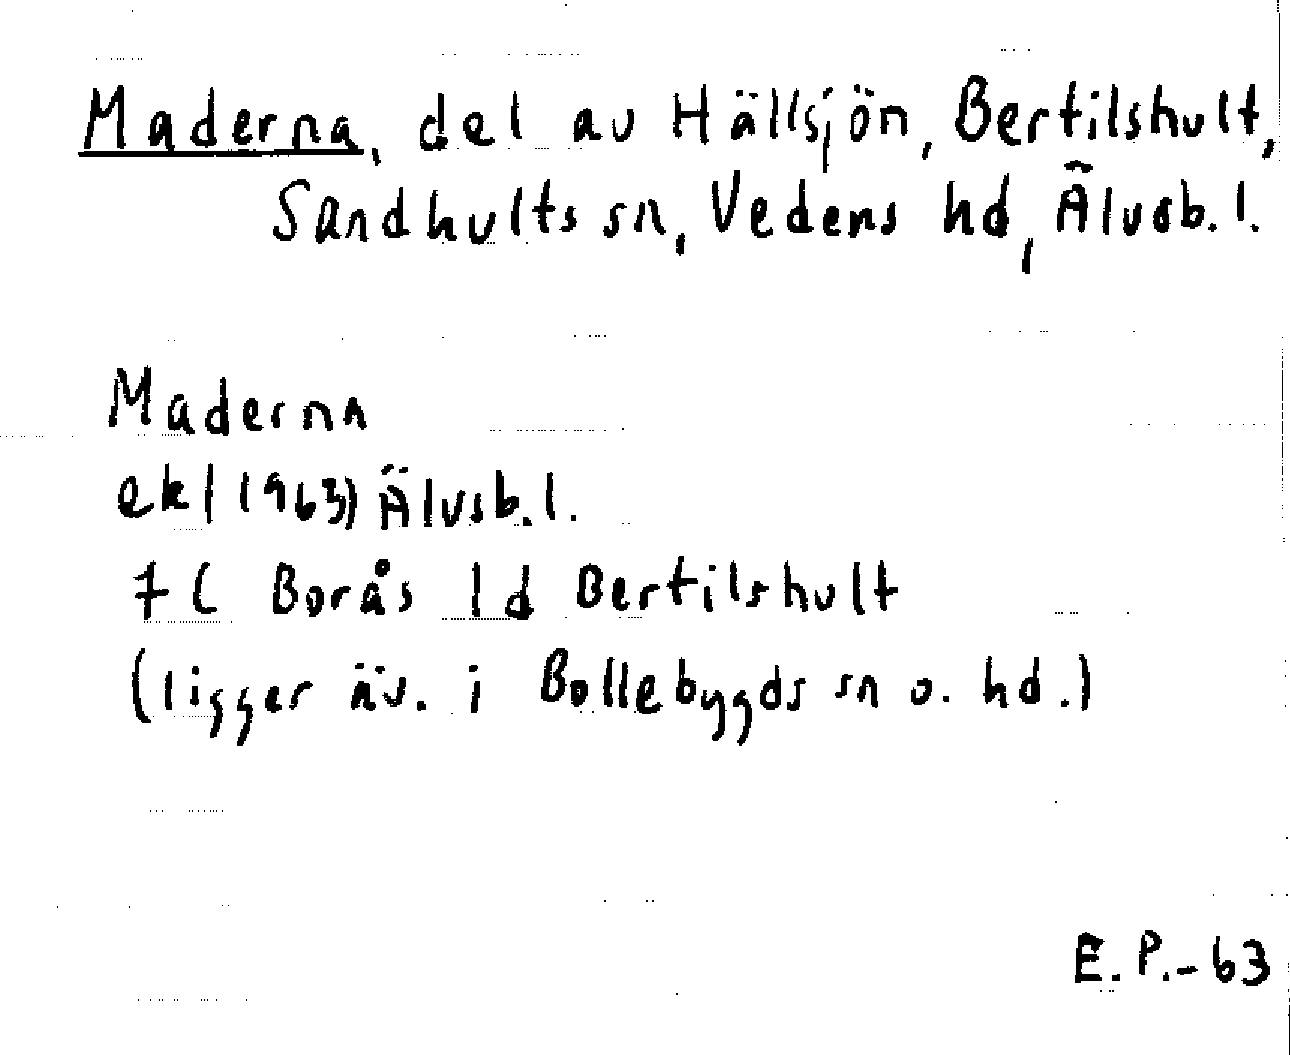 Maderna, del av Hällsjön, Bertilshult,
Sandhults sn, Vedens hd, Älvsb. l.
Maderna
ek (1963) Älvsb. l.
7 C Borås 1 d Bertilshult
(ligger äv. i Bollebygds sn o. hd.)
E. P. - 63